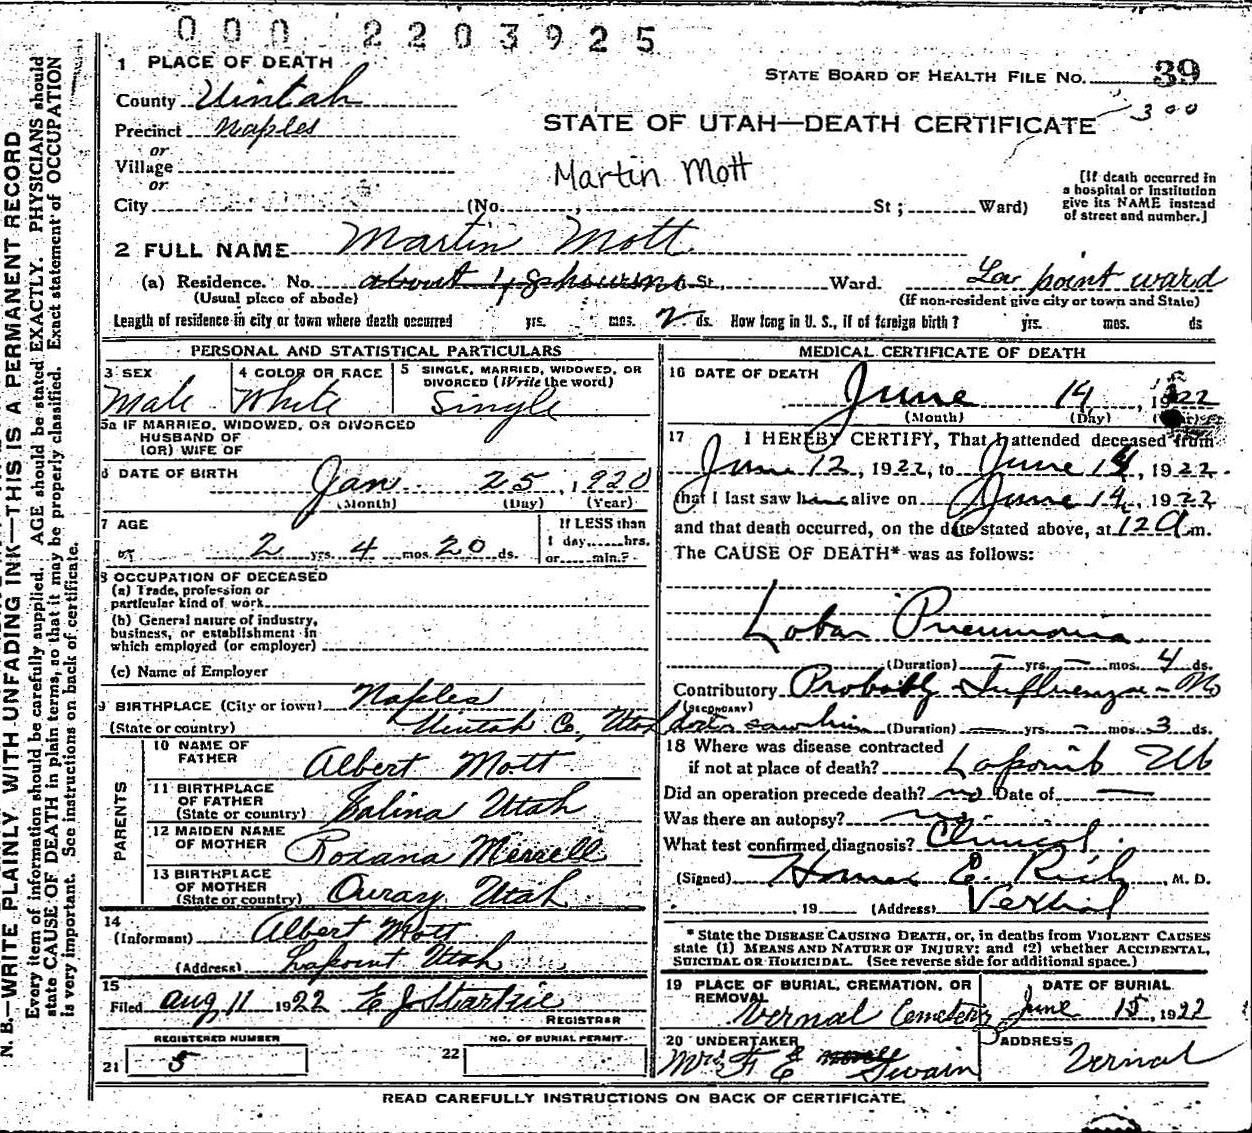 000 2203925
1 PLACE OF DEATH
STATE BOARD OF HEALTH FILE NO. 39
County Uintah
300
Precinct Naples
STATE OF UTAH—DEATH CERTIFICATE
or
Village
Martin Mott
or
City (No. , St ; Ward)
[If death occurred in a hospital or Institution give its NAME instead of street and number.]
2 FULL NAME Martin Mott
(a) Residence. No. about 48 hours St., Ward. La point ward
(Usual place of abode) (If non-resident give city or town and State)
Length of residence in city or town where death occurred yrs. mos. 2 ds. How long in U. S., if of foreign birth? yrs. mos. ds
PERSONAL AND STATISTICAL PARTICULARS
3 SEX Male
4 COLOR OR RACE White
5 SINGLE, MARRIED, WIDOWED, OR DIVORCED (Write the word) Single
5a IF MARRIED, WIDOWED, OR DIVORCED
HUSBAND OF
(OR) WIFE OF
6 DATE OF BIRTH Jan. 25, 1920
(Month) (Day) (Year)
7 AGE
2 yrs. 4 mos. 20 ds.
If LESS than
1 day, hrs.
or min.?
8 OCCUPATION OF DECEASED
(a) Trade, profession or
particular kind of work
(b) General nature of industry,
business, or establishment in
which employed (or employer)
(c) Name of Employer
9 BIRTHPLACE (City or town) Naples
(State or country) Uintah Co, Utah
PARENTS
10 NAME OF FATHER Albert Mott
11 BIRTHPLACE OF FATHER (State or country) Salina Utah
12 MAIDEN NAME OF MOTHER Roxana Merrell
13 BIRTHPLACE OF MOTHER (State or country) Ouray Utah
14
(Informant) Albert Mott
(Address) Lapoint Utah
15
Filed Aug 11 1922 E J Startzie
REGISTRAR
REGISTERED NUMBER
21 5
NO. OF BURIAL PERMIT
22
MEDICAL CERTIFICATE OF DEATH
16 DATE OF DEATH
June 14, 1922
(Month) (Day) (Year)
17 I HEREBY CERTIFY, That I attended deceased from
June 12, 1922, to June 14, 1922.
that I last saw him alive on June 14, 1922
and that death occurred, on the date stated above, at 12 a m.
The CAUSE OF DEATH* was as follows:
Lobar Pneumonia
(Duration) — yrs. — mos. 4 ds.
Contributory Probably Influenza - No
(SECONDARY)
doctor saw him (Duration) — yrs. — mos. 3 ds.
18 Where was disease contracted
if not at place of death? Lapoint Ut
Did an operation precede death? no Date of —
Was there an autopsy? no
What test confirmed diagnosis? Clinical
(Signed) Homer E. Rich, M. D.
, 19 (Address) Vernal
* State the DISEASE CAUSING DEATH, or, in deaths from VIOLENT CAUSES
state (1) MEANS AND NATURE OF INJURY; and (2) whether ACCIDENTAL,
SUICIDAL OR HOMICIDAL. (See reverse side for additional space.)
19 PLACE OF BURIAL, CREMATION, OR REMOVAL Vernal Cemetery
DATE OF BURIAL June 15, 1922
20 UNDERTAKER Mrs F E Swain
ADDRESS Vernal
READ CAREFULLY INSTRUCTIONS ON BACK OF CERTIFICATE.
N. B.—WRITE PLAINLY, WITH UNFADING INK—THIS IS A PERMANENT RECORD
Every item of information should be carefully supplied. AGE should be stated EXACTLY. PHYSICIANS should
state CAUSE OF DEATH in plain terms, so that it may be properly classified. Exact statement of OCCUPATION
is very important. See instructions on back of certificate.